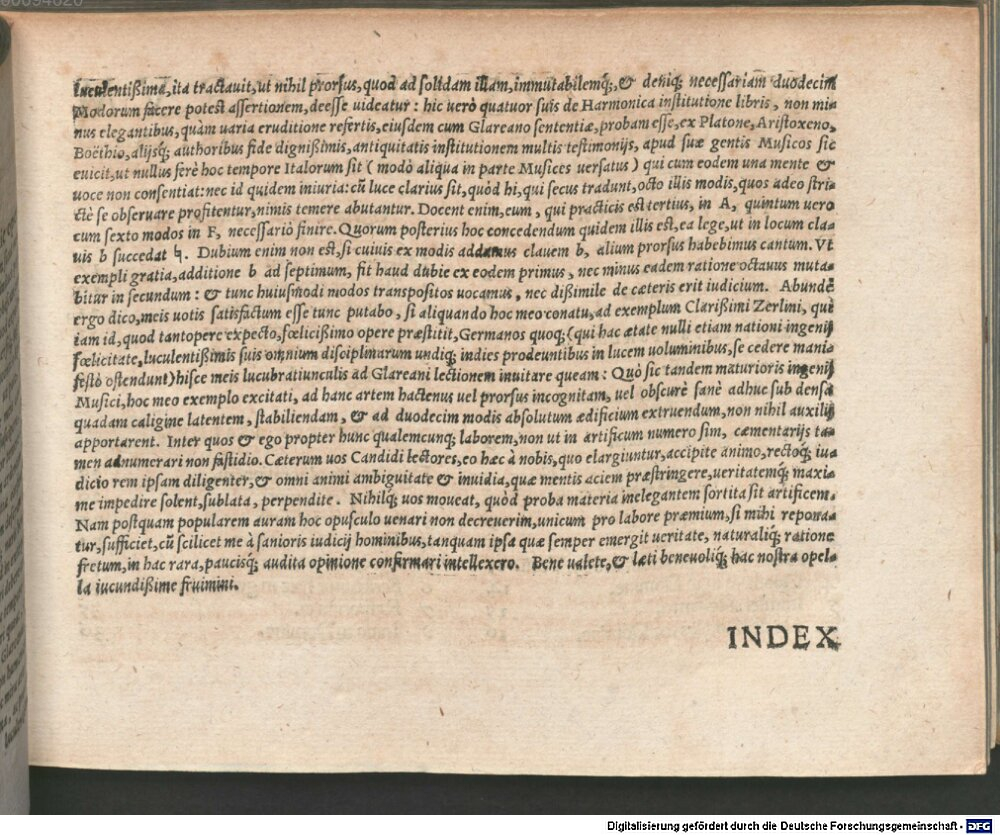 luculentißimè, ita tractauit, ut nihil prorsus, quod ad solidam illam, immutabilemq́;, & deniq; necessariam duodecim
Modorum facere potest assertionem, deesse uideatur: hic uerò quatuor suis de Harmonica institutione libris, non mi-
nus elegantibus, quàm uaria eruditione refertis, eiusdem cum Glareano sententiæ, probam esse, ex Platone, Aristoxeno,
Boëthio, alijsq́; authoribus fide dignißimis, antiquitatis institutionem multis testimonijs, apud suæ gentis Musicos sic
euicit, ut nullus ferè hoc tempore Italorum sit (modò aliqua in parte Musices uersatus) qui cum eodem una mente &
uoce non consentiat: nec id quidem iniuria: cũ luce clarius sit, quòd hi, qui secus tradunt, octo illis modis, quos adeo stri-
ctè se obseruare profitentur, nimis temere abutantur. Docent enim, eum, qui practicis est tertius, in A, quintum uero
cum sexto modos in F, necessariò finire. Quorum posterius hoc concedendum quidem illis est, ea lege, ut in locum cla-
uis b succedat ♮. Dubium enim non est, si cuiuis ex modis addamus clauem b, alium prorsus habebimus cantum. Vt
exempli gratia, additione b ad septimum, fit haud dubie ex eodem primus, nec minus eadem ratione octauus muta-
bitur in secundum: & tunc huiusmodi modos transpositos uocamus, nec dißimile de cæteris erit iudicium. Abundè
ergo dico, meis uotis satisfactum esse tunc putabo, si aliquando hoc meo conatu, ad exemplum Clarißimi Zerlini, qui
iam id, quod tantopere expecto, fœlicißimo opere præstitit, Germanos quoq; (qui hac ætate nulli etiam nationi ingenij
fœlicitate, luculentißimis suis omnium disciplinarum undiq; indies prodeuntibus in lucem uoluminibus, se cedere mani-
festò ostendunt) hisce meis lucubratiunculis ad Glareani lectionem inuitare queam: Quò sic tandem maturioris ingenij
Musici, hoc meo exemplo excitati, ad hanc artem hactenus uel prorsus incognitam, uel obscurè sanè adhuc sub densa
quadam caligine latentem, stabiliendam, & ad duodecim modis absolutum ædificium extruendum, non nihil auxilij
apportarent. Inter quos & ego propter hunc qualemcunq; laborem, non ut in artificum numero sim, cæmentarijs ta-
men adnumerari non fastidio. Cæterum uos Candidi lectores, eo hæc à nobis, quo elargiuntur, accipite animo, rectoq́; iu-
dicio rem ipsam diligenter, & omni animi ambiguitate & inuidia, quæ mentis aciem præstringere, ueritatemq́; maxi-
me impedire solent, sublata, perpendite. Nihilq́; uos moueat, quòd proba materia inelegantem sortita sit artificem.
Nam postquam popularem auram hoc opusculo uenari non decreuerim, unicum pro labore præmium, si mihi repona-
tur, sufficiet, cũ scilicet me à sanioris iudicij hominibus, tanquam ipsa quæ semper emergit ueritate, naturaliq́; ratione
fretum, in hac rara, paucisq́; audita opinione confirmari intellexero. Bene ualete, & læti beneuoliq́; hac nostra opel-
la iucundißime fruimini.
INDEX
Digitalisierung gefördert durch die Deutsche Forschungsgemeinschaft - DFG